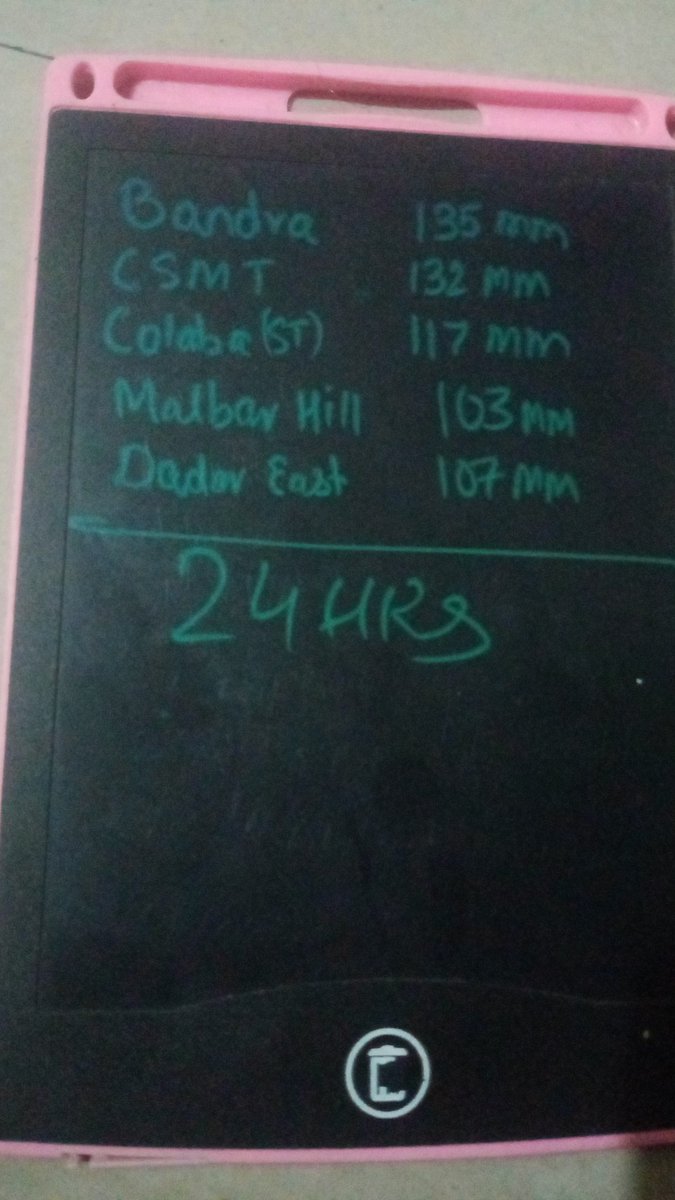 Bandra 135 mm
CSMT 132 mm
Colaba (ST) 117 mm
Malbar Hill 103 mm
Dadar East 107 mm
24 HRS